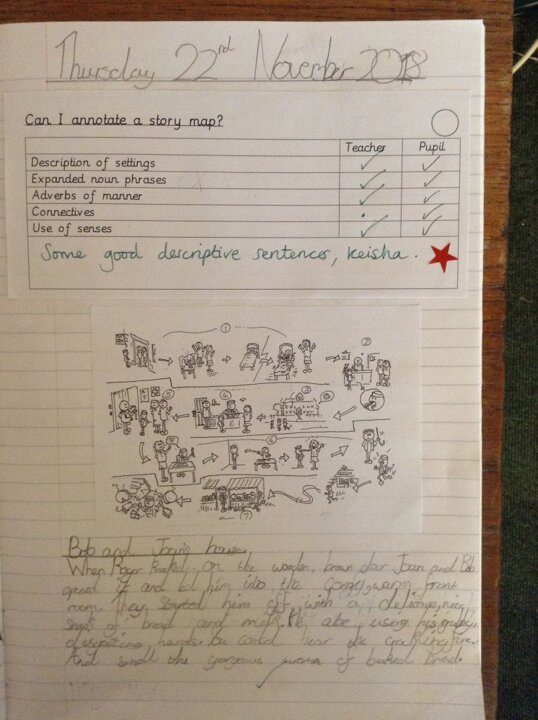 Thursday 22nd November 2018
Can I annotate a story map?
Teacher Pupil
Description of settings
Expanded noun phrases
Adverbs of manner
Connectives
Use of senses
Some good descriptive sentences, Keisha.
1
2
Bob and Joan's house
When Roger on the wooden, brown door Joan and Bob
opened it and let him into the warm front
room. They started him off with a
of bread and milk. He ate using his grubby
disgusting hands. he could hear the fire.
And smell the gorgeous aroma of baked bread.